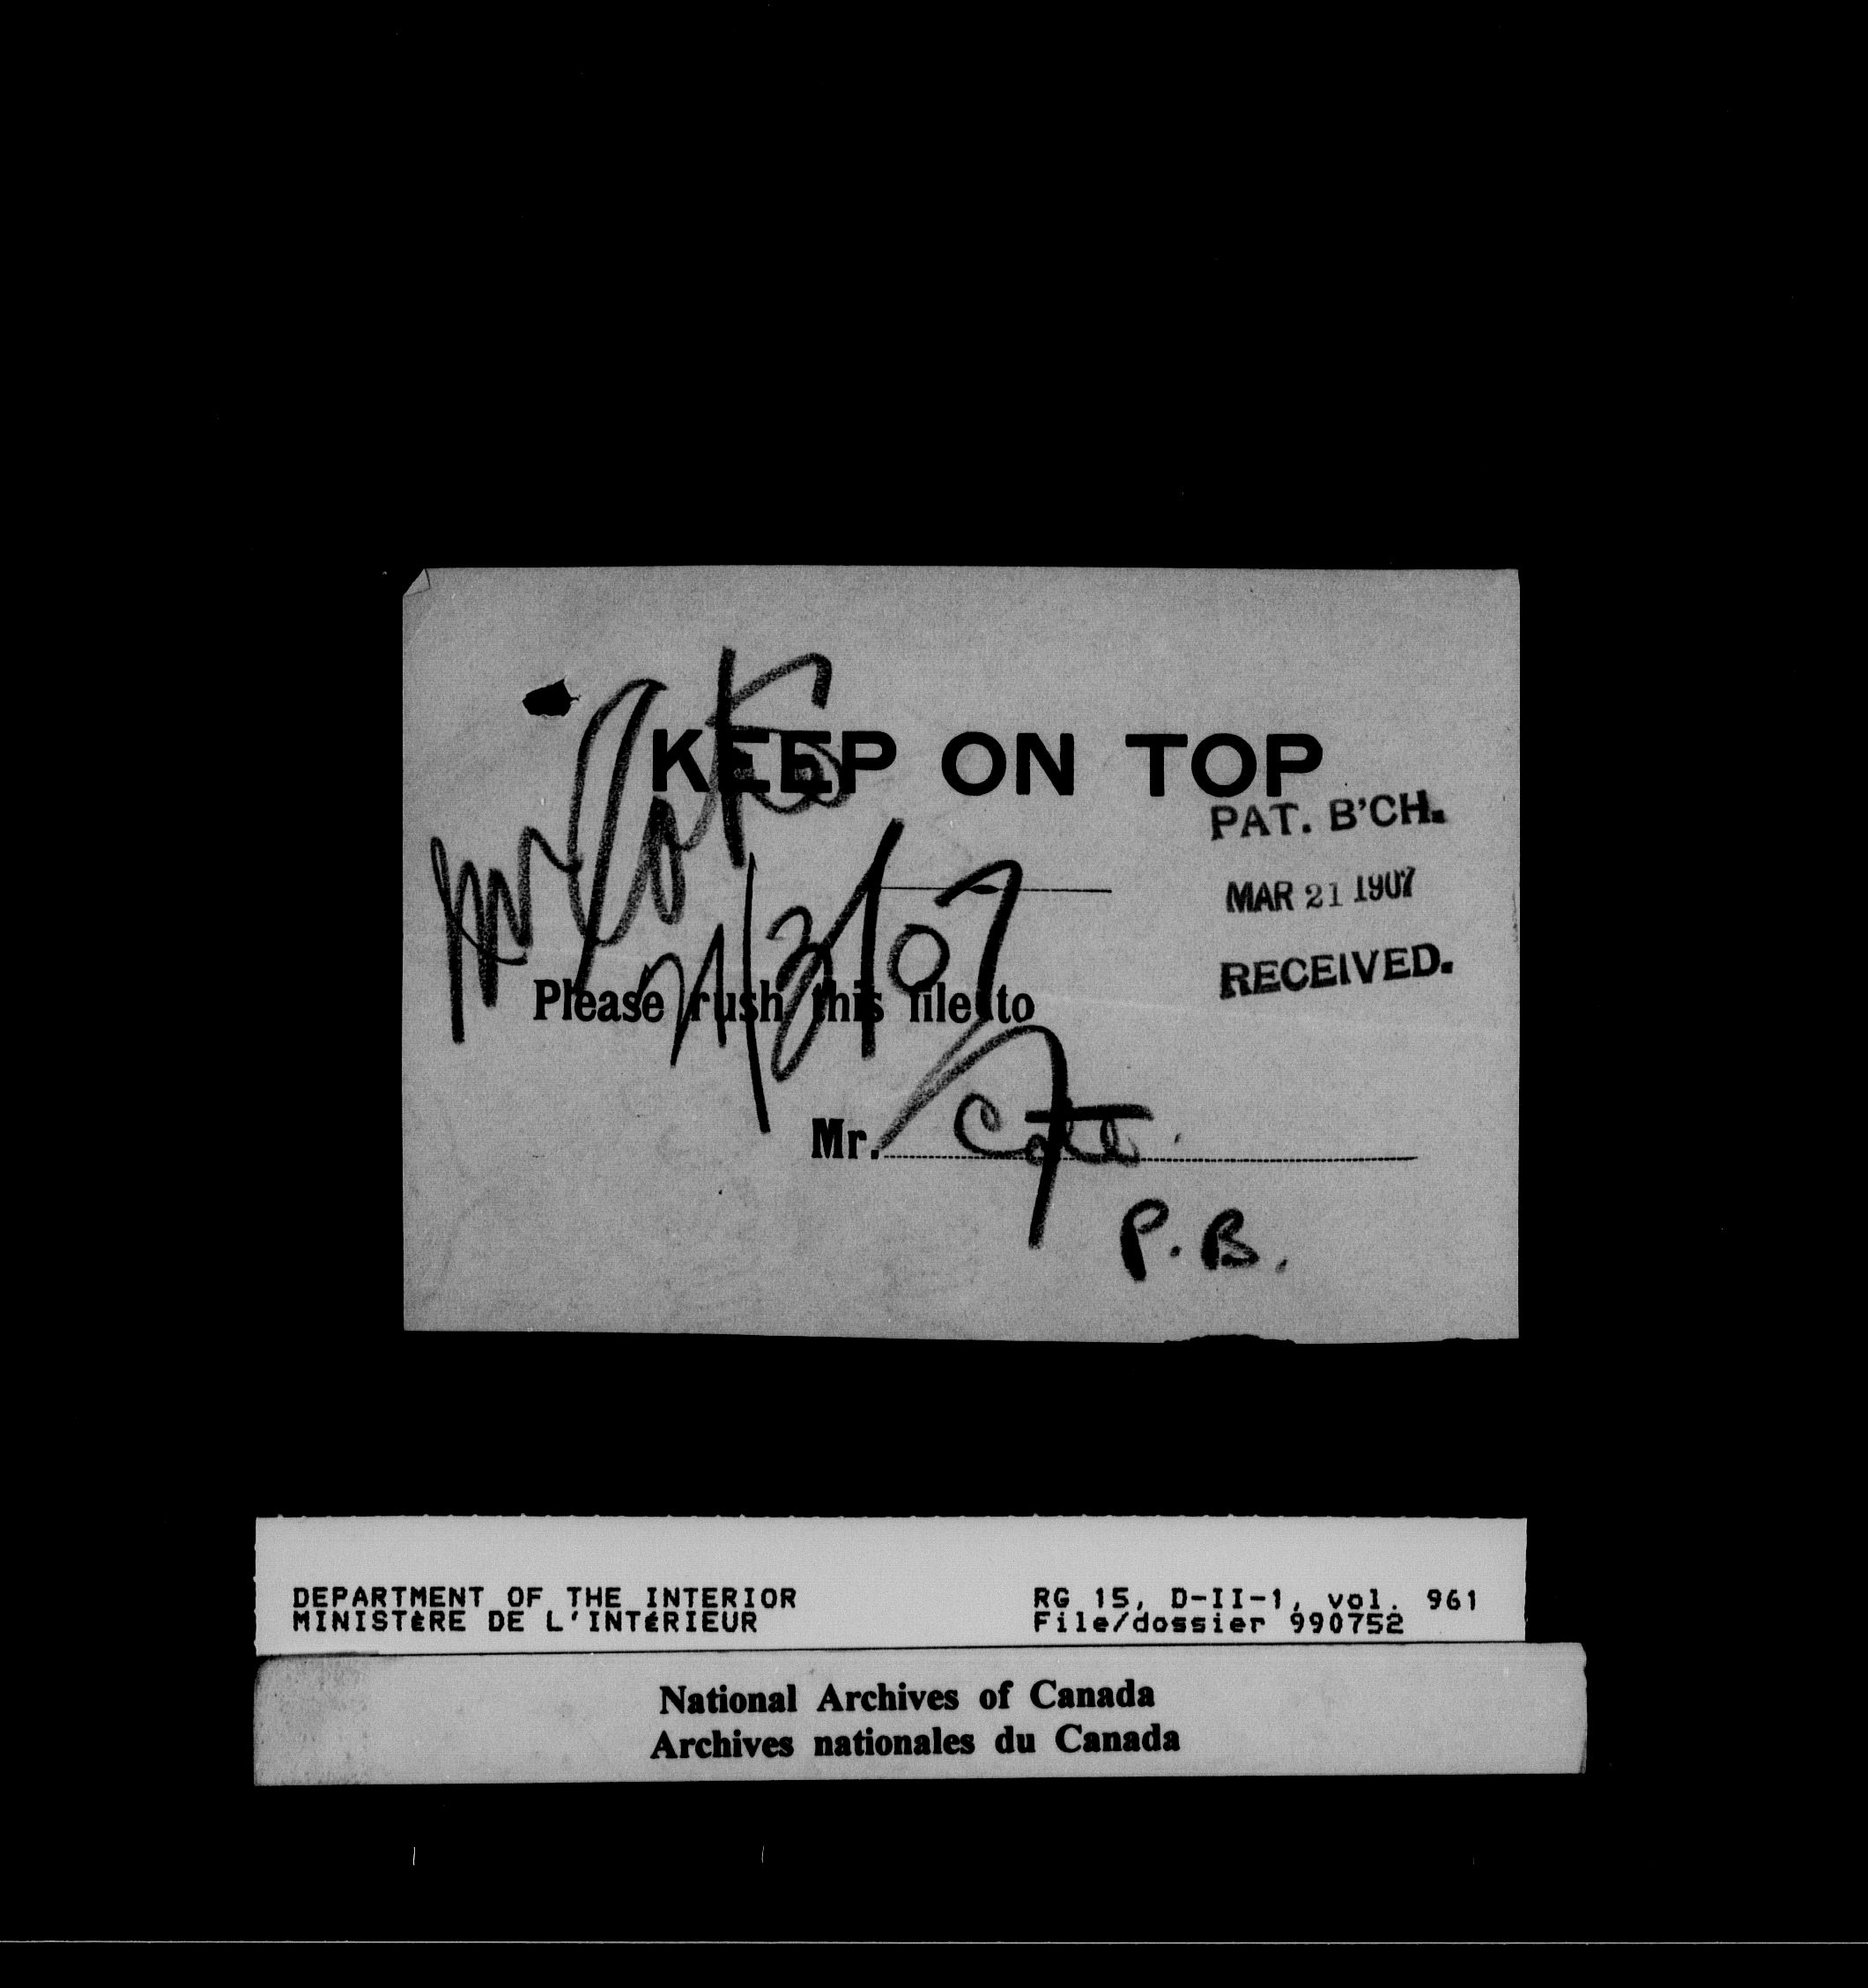 KEEP ON TOP
PAT. B'CH.
MAR 21 1907
RECEIVED.
Mr
21/3/07
Please rush this file to
Mr. Cote
P. B.
DEPARTMENT OF THE INTERIOR
MINISTÈRE DE L'INTÉRIEUR
RG 15, D-II-1, vol. 961
File/dossier 990752
National Archives of Canada
Archives nationales du Canada